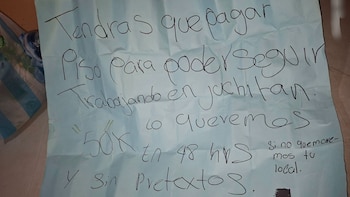 Tendras que pagar
Piso para poder seguir
Trabajando en juchitan
lo queremos
"50X" En 48 hrs
Y sin Pretextos.
Si no quemare-
mos tu
local.